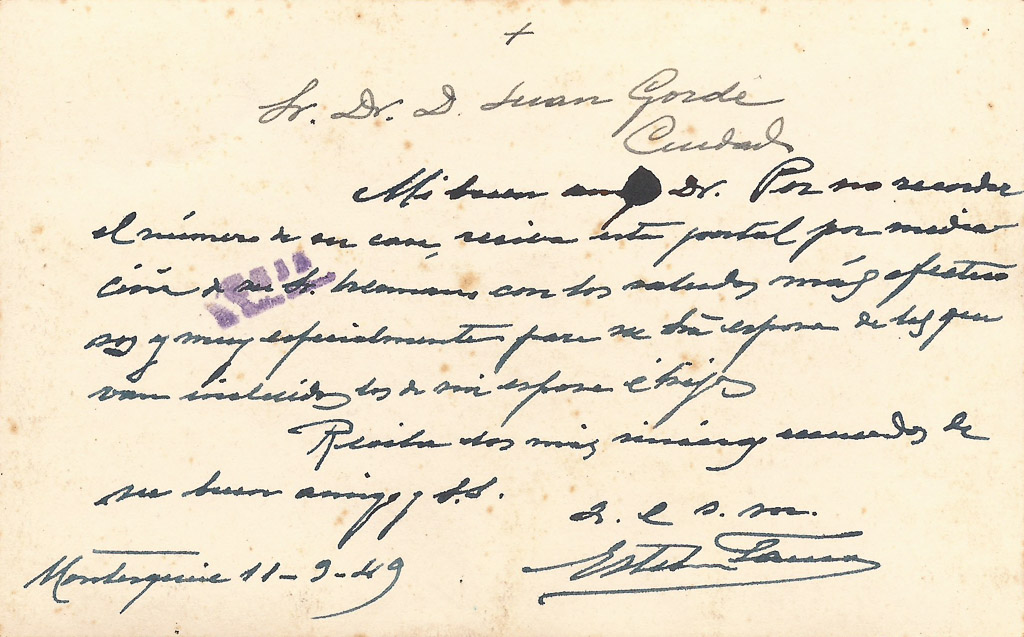 +
Sr. Dr. D. Juan Gorde
Ciudad
Mi buen Dr. Por no recordar
el número de su casa, reciba esta postal por media-
ción de su Sr. hermano con los saludos más afectuo
sos y muy especialmente para su Sra esposa de los que
van incluidos los de mi esposa é hijos
Reciba los más sinceros recuerdos de
su buen amigo y S.S.
q. e s. m.
Esteban
11-9-49